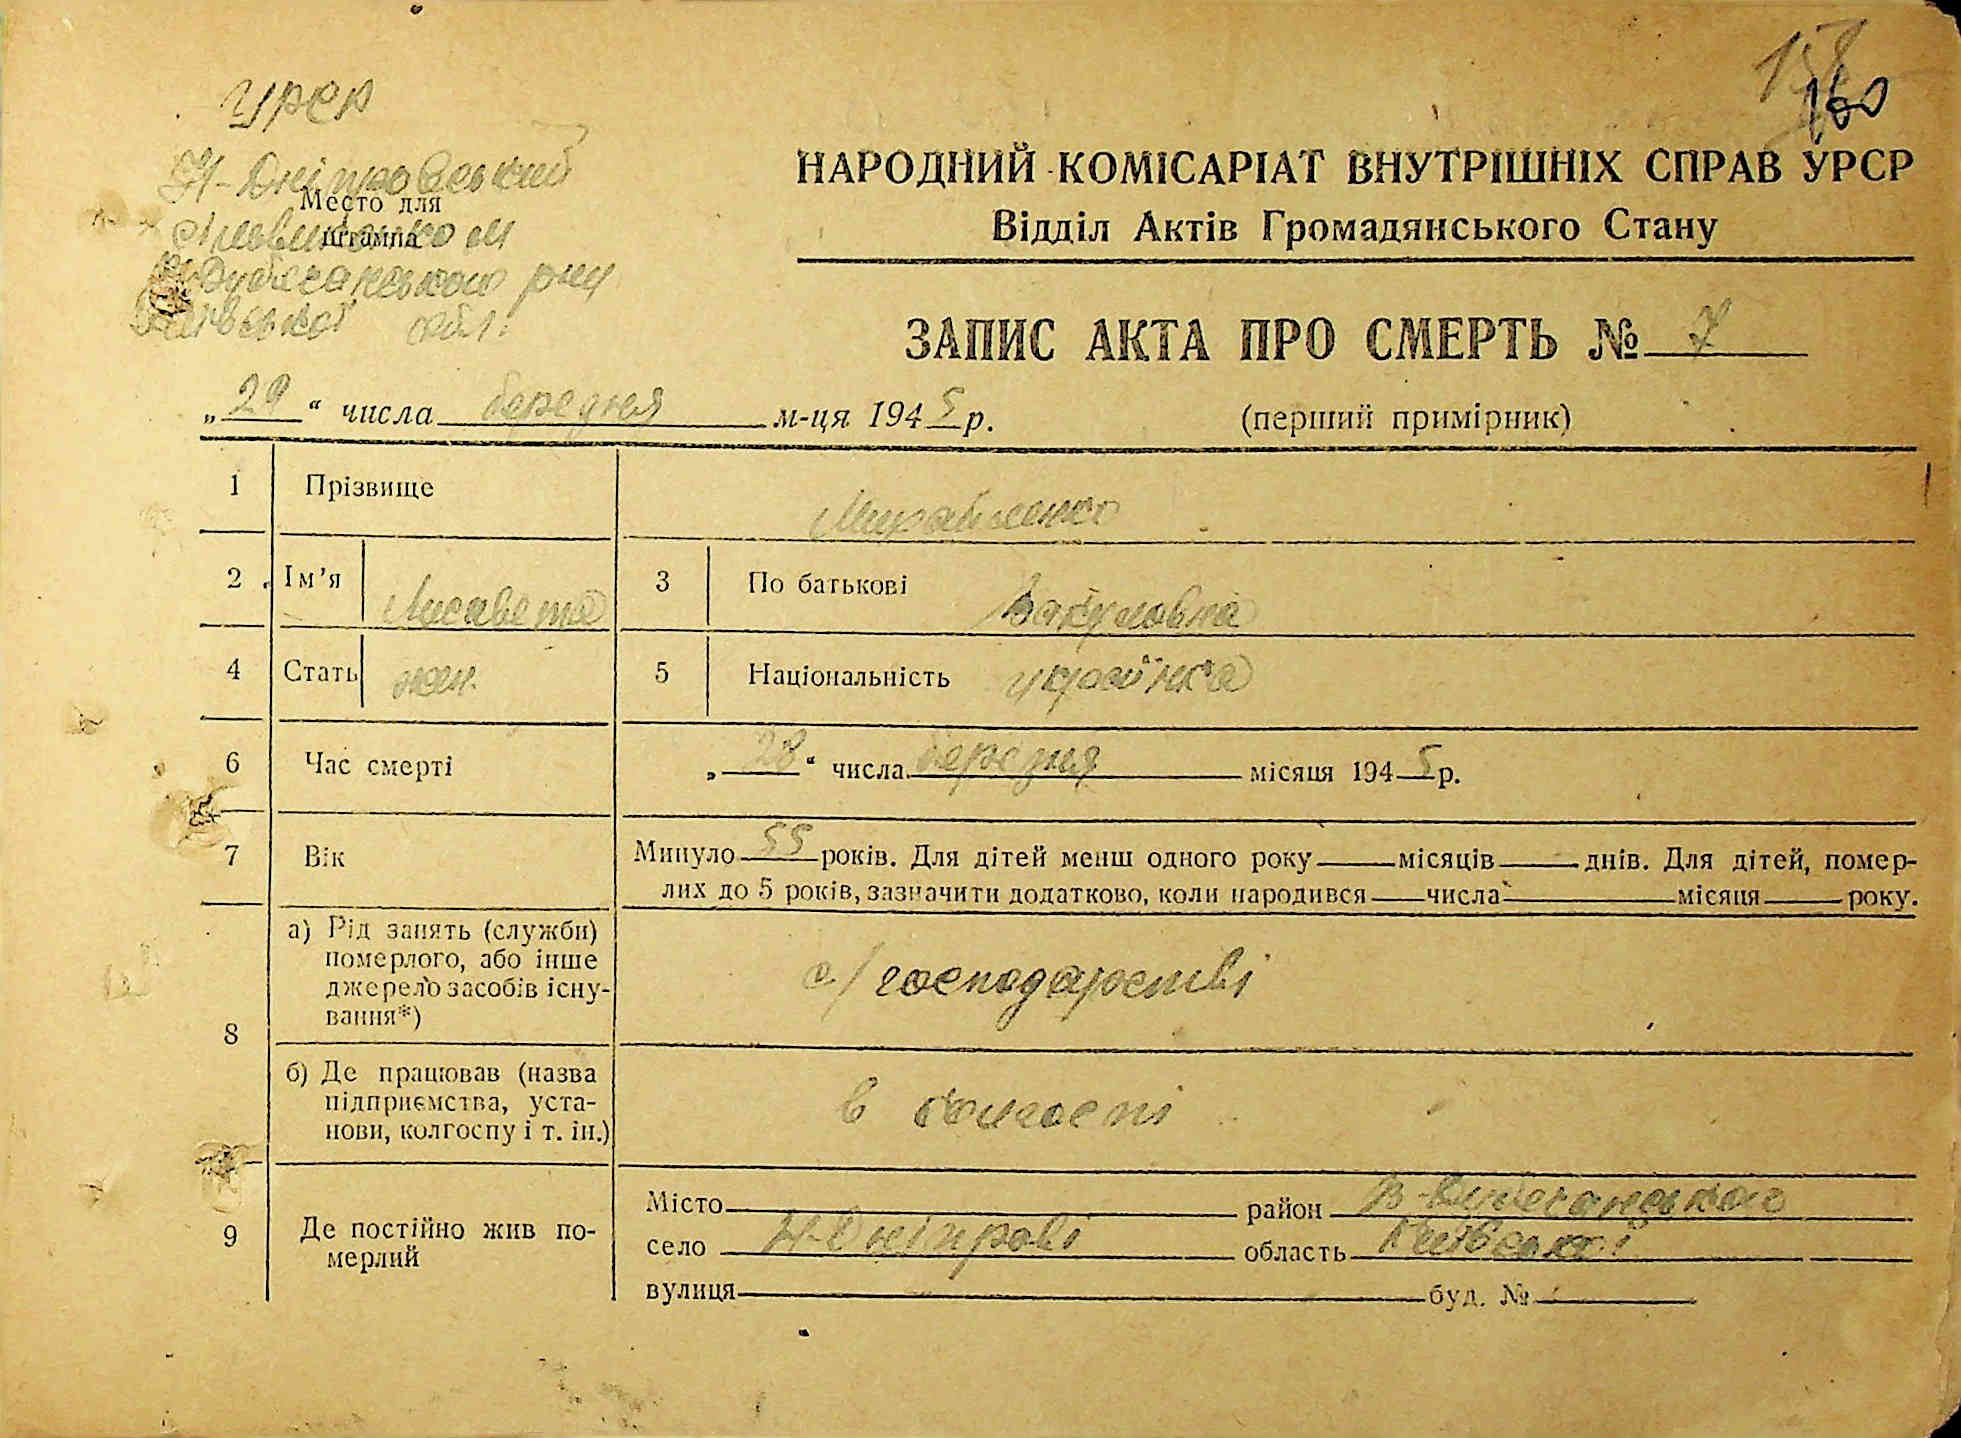 160
урср
Н-Дніпровський
Место для
штампа
обл.
НАРОДНИЙ КОМІСАРІАТ ВНУТРІШНІХ СПРАВ УРСР
Відділ Актів Громадянського Стану
ЗАПИС АКТА ПРО СМЕРТЬ № 7
„29“ числа березня м-ця 1945 р.
(перший примірник)
1 Прізвище Михайленко
2 Ім'я Лисавета 3 По батькові Вакуловна
4 Стать жен. 5 Національність українка
6 Час смерті „28“ числа березня місяця 1945 р.
7 Вік Минуло 55 років. Для дітей менш одного року місяців днів. Для дітей, помер-
лих до 5 років, зазначити додатково, коли народився числа місяця року.
8 а) Рід занять (служби)
померлого, або інше
джерело засобів існу-
вання*)
с/господарстві
б) Де працював (назва
підприємства, уста-
нови, колгоспу і т. ін.)
в колгоспі
9 Де постійно жив по-
мерлий
Місто район
село Н-Дніпрові область Київської
вулиця буд. №